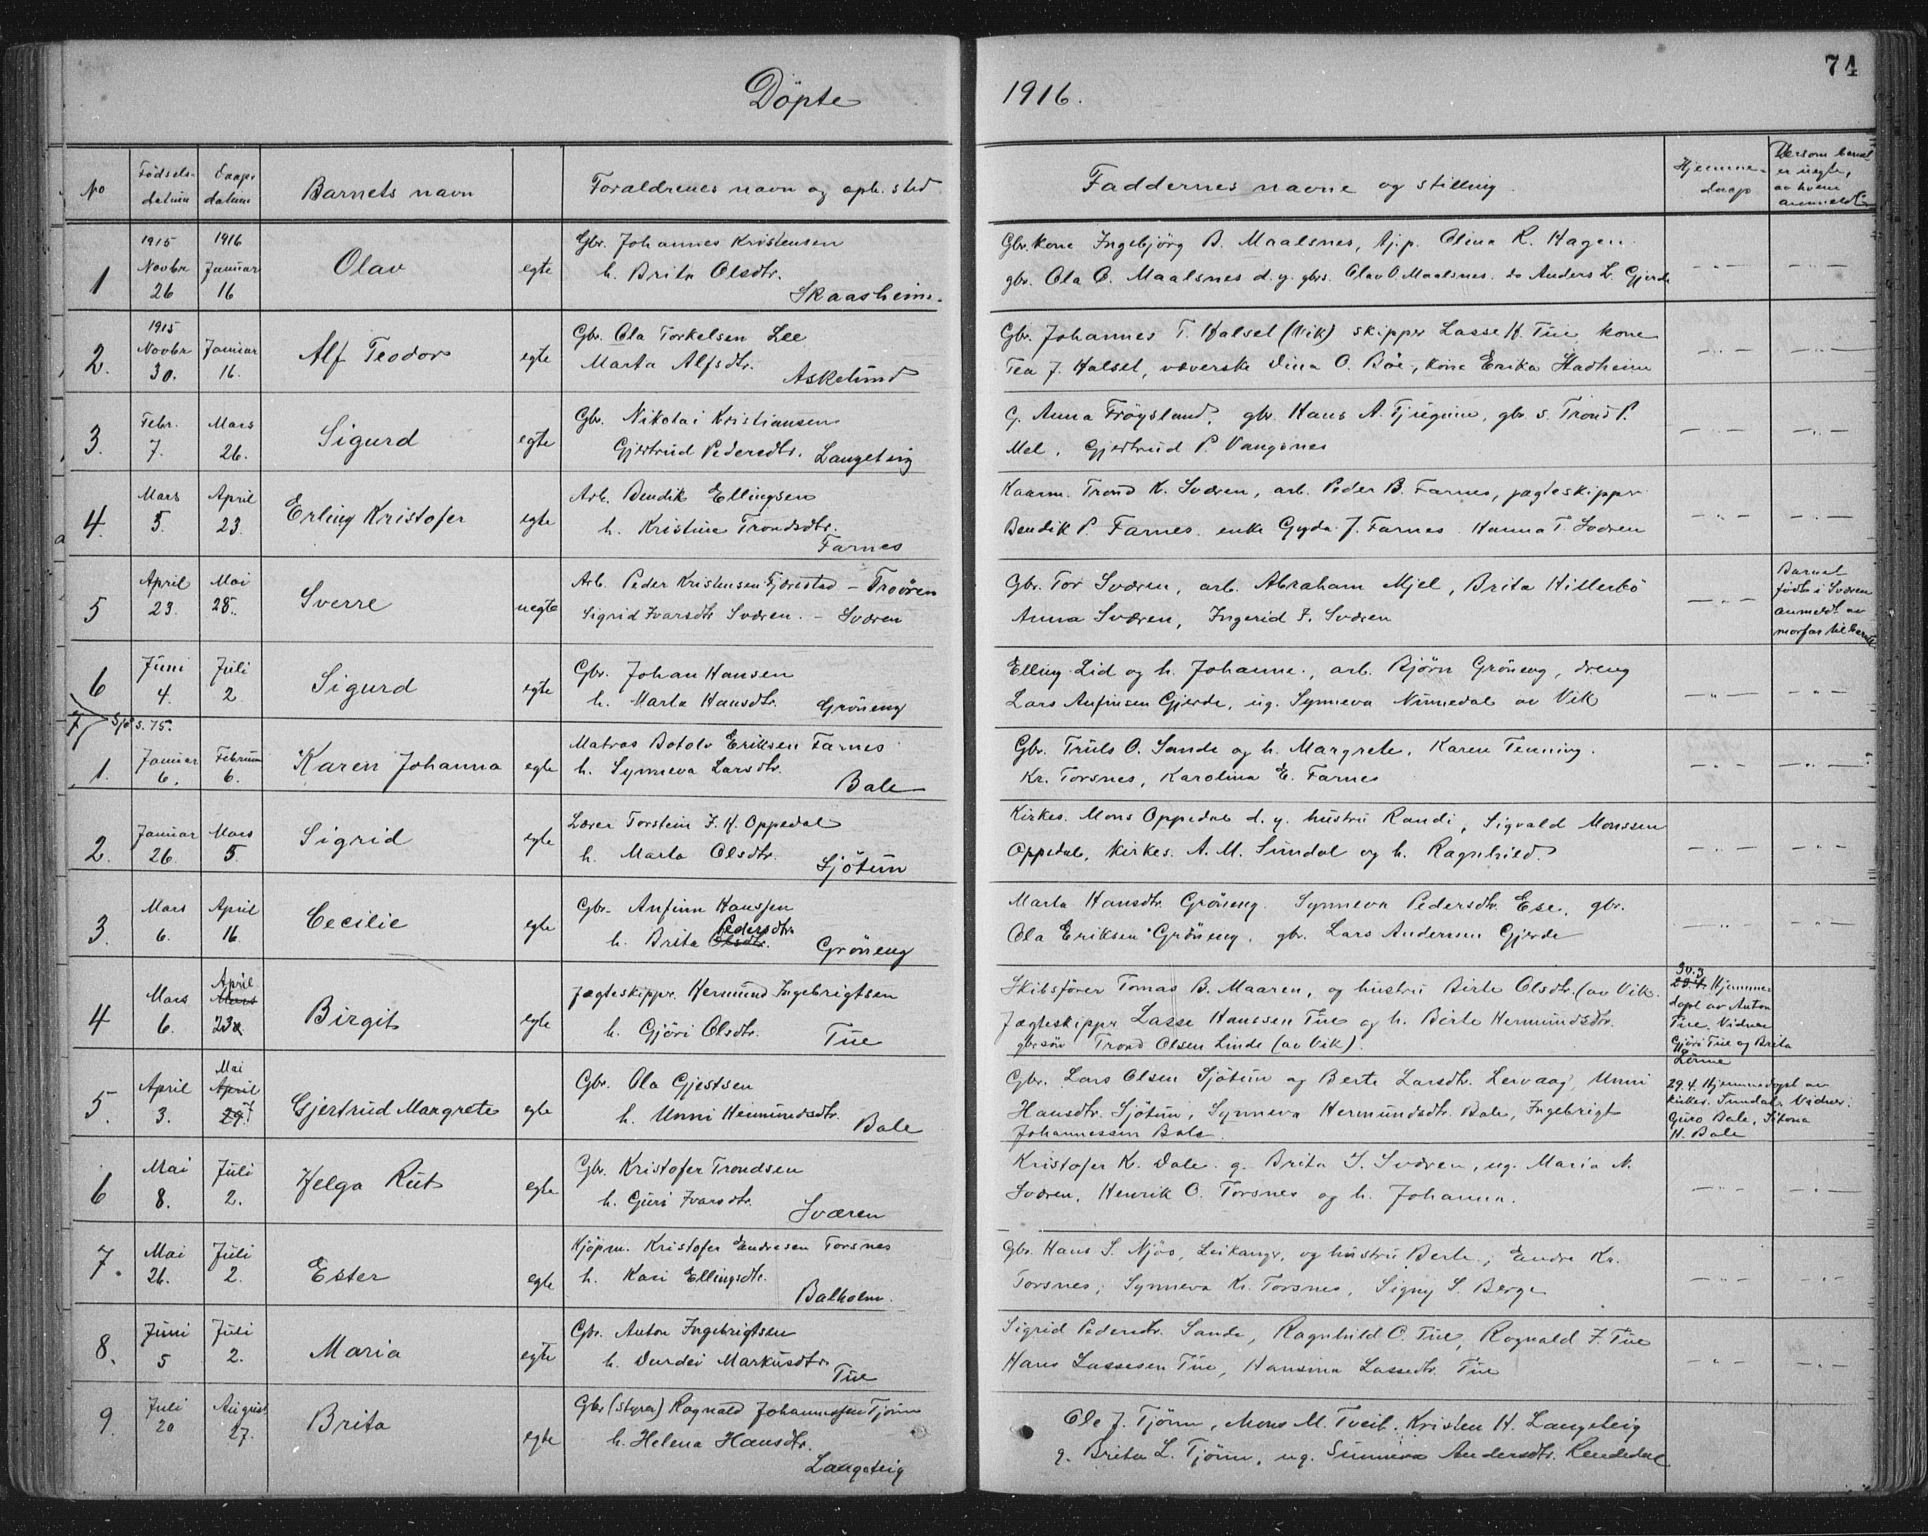 74
Döpte 1916.
No Fødsels-datum Daaps datum Barnets navn Foraldrenes navn og oph. sted Faddernes navne og stilling Hjemme-daap Dersom barnet er uegte, av hvem anmeldt
1 1915 Novbr 26 1916 Januar 16 Olav egte Gbr. Johannes Kristensen
h. Brita Olsdtr.
Skaasheim.
Gbr. kone Ingebjörg B. Maalsnes, tj.p. Olina R. Hagen
gbr. Ola O. Maalsnes d.y. gbrs. Olav O. Maalsnes. do Anders L. Gjerde
2. 1915 Novbr 30. Januar 16. Alf Teodor egte Gbr. Ola Torkelsen Lee
Marta Alfsdtr.
Askelund
Gbr. Johannes T. Halset (Vik) skippr Lasse H. Tue, kone
Tea J. Halset, væverske Dina O. Böe, kone Erika Stadheim
3. Febr. 7. Mars 26. Sigurd egte Gbr. Nikolai Kristiansen
Gjertrud Pedersdtr. Langeteig
G. Anna Fröysland, gbr. Hans A. Tjugum, gbr. s. Trond P.
Mel, Gjertrud P. Vangsnes
4. Mars 5. April 23. Erling Kristofer egte Arb. Bendik Ellingsen
h. Kristine Trondsdtr.
Farnes
Kaarm. Trond K. Sværen, arb. Peder B. Farnes, jagteskippr
Bendik P. Farnes. enke Gyda J. Farnes. Hanna T. Sværen
5 April 23. Mai 28. Sverre uegte Arb. Peder Kristensen Fjærestad –
Sigrid Ivarsdtr Sværen. – Sværen
Gbr. Tor Sværen, arb. Abraham Mjel, Brita Hillerbö
Anna Sværen, Ingerid I. Sværen
Barnet
födt i Sværen
anmeldt av
morfar til barnet
6 Juni 4. Juli 2 Sigurd egte Gbr. Johan Hansen
h. Marta Hansdtr. Gröneng
Elling Lid og h. Johanne, arb. Bjørn Gröneng, dreng
Lars Anfinsen Gjerde, ug. Synneva Nummedal av Vik
7 Sjå s. 75.
1. Januar 6. Februar 6. Karen Johanna egte Matros Botolv Eriksen Farnes
h. Synneva Larsdtr.
Bale
Gbr. Truls O. Sande og h. Margrete, Karen Tenning.
Kr. Torsnes, Karolina E. Farnes
2. Januar 26. Mars 5. Sigrid egte Lærer Torstein J. H. Oppedal
h. Marta Olsdtr.
Sjötun
Kirkes. Mons Oppedal d.y. hustru Randi, Sigvald Monssen
Oppedal, Kirkes. A. M. Sundal og h. Ragnhild.
3. Mars 6. April 16. Cecilie egte Gbr. Anfinn Hanssen
h. Brita Olsdtr. Pedersdtr.
Gröneng
Marta Hansdtr. Gröneng. Synneva Pedersdtr. Ese, gbr.
Ola Eriksen Gröneng, gbr. Lars Andersen Gjerde
4 Mars 6. April Mars 23 Birgit egte Jægteskippr. Hermund Ingebrigtsen
h. Gjöri Olsdtr. Tue
Skibsfører Tomas B. Maaren, og hustru Birte Olsdtr. (av Vik.
Jægteskippr Lasse Hanssen Tue og h. Birte Hermundsdtr.
gbr.søn Trond Olsen Linde (av Vik).
30.3
23.4 Hjemme
döpt av Anton
Tue. Vidner
Gjöri Tue og Brita
5. April 3. Mai April Gjertrud Margrete egte Gbr. Ola Gjestsen
h. Unni Hermundsdtr. Bale
Gbr. Lars Olsen Sjötun og Berte Larsdtr. Lervaag, Unni
Hansdtr. Sjötun, Synneva Hermundsdtr. Bale, Ingebrigt
Johannessen Bale.
29.4. Hjemmedöpt av
kirkes. Sundal. Vidner:
Guro Bale,
H. Bale
6 Mai 8. Juli 2. Helga Rut egte Gbr. Kristofer Trondsen
h. Guri Ivarsdtr. Sværen
Kristofer K. Dale. g. Brita I. Sværen, ug. Maria N.
Sværen, Henrik O. Torsnes og h. Johanna.
7. Mai 26. Juli 2. Ester egte Kjøpm. Kristofer Endresen Torsnes
h. Kari Ellingsdtr.
Balholm.
Gbr. Hans S. Njøs, Leikangr, og hustru Berte, Endre Kr.
Torsnes, Synneva Kr. Torsnes, Signy S. Berge
8. Juni 5 Juli 2. Maria egte Gbr. Anton Ingebrigtsen
h. Durdei Markusdtr.
Tue
Sigrid Pedersdtr. Sande, Ragnhild O. Tue, Ragnald J. Tue
Hans Lassesen Tue, Hansina Lassedtr. Tue
9. Juli 20 August 27. Brita egte Gbr (styrer) Ragnald Johannessen Tjönn
h. Helena Hansdtr.
Langeteig
Ole J. Tjönn, Mons M. Tveit. Kristen H. Langeteig
g. Brita L. Tjönn, ug. Sunneva Andersdtr. Rendedal